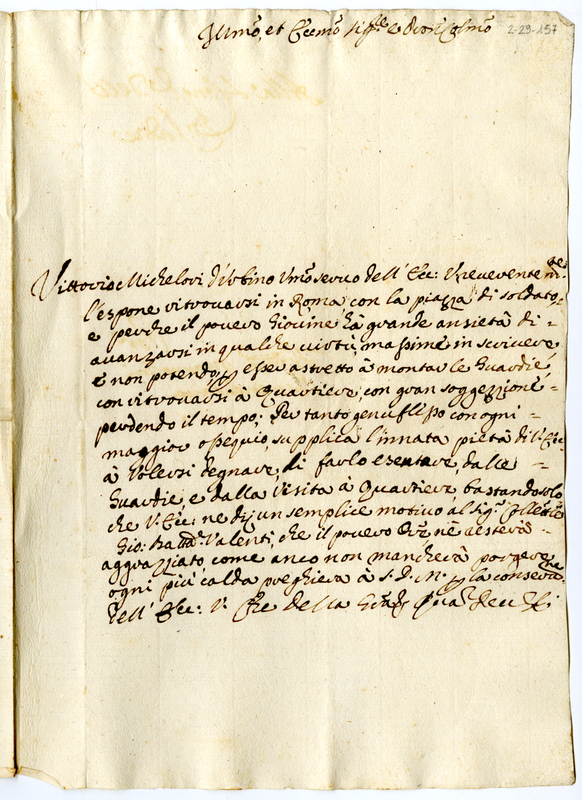 Illmo, et Eccmo Sigre e Pron Colmo
2-29-157
Vittorio Michelori d'Urbino Umo servo dell'Ecc: V. reverentemte
l'espone ritrovarsi in Roma con la piazza di soldato,
e perche il povero Giovine hà grande ansietà di -
avanzarsi in qualche virtù, massime in scrivere
e non potendo, p esser astretto à montar le Guardie,
con ritrovarsi à Quartiere, con gran soggezzione -
perdendo il tempo; Per tanto genuflesso con ogni -
maggior ossequio, supplica l'innata pietà di V. Ecc:
à Volersi degnare, di farlo esentare, dalle -
Guardie, e dalla Visita à Quartiere, bastando solo
che V. Ecc: ne dij un semplice motivo al Sigr
Gio: Batta Valenti, che il povero Ore nè resterà -
aggraziato, come anco non mancherà porgere
ogni più calda preghiera à S. D. M. p la conservne
dell'Ecc: V. Che della Gra